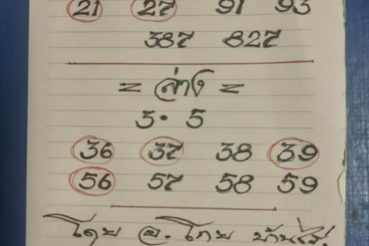 21 27 91 93
387 827
= ล่าง =
3. 5
36 37 38 39
56 57 58 59
โดย อ. โภย บ้านไร่